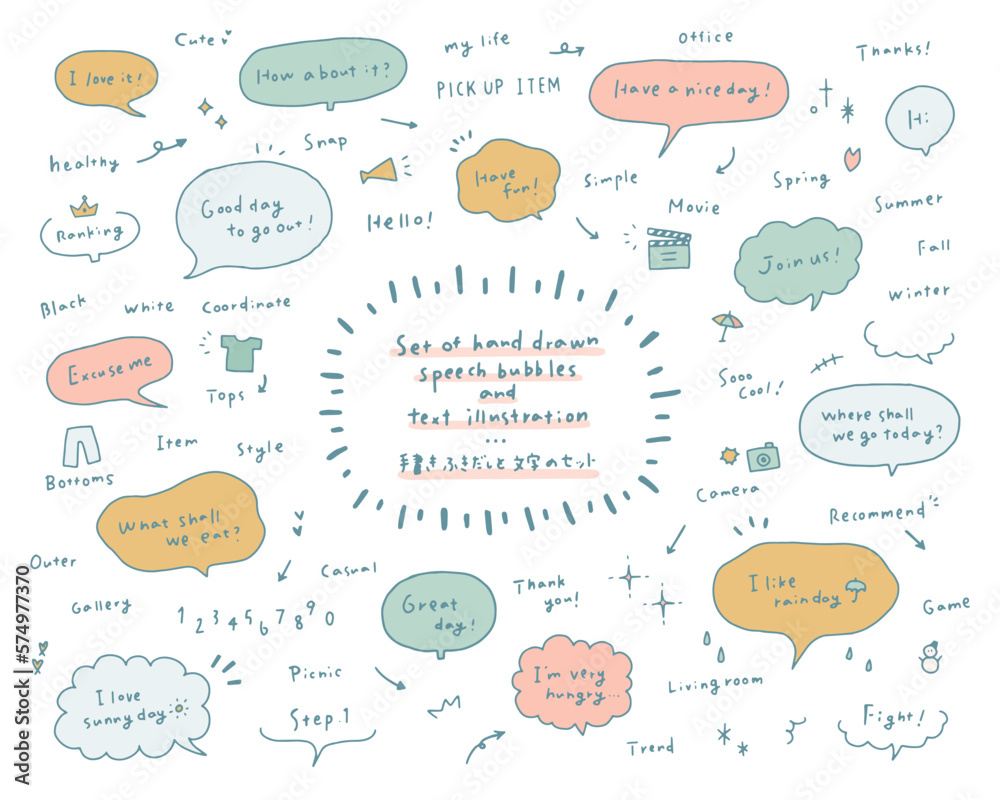 Cute
my life
office
Thanks!
I love it!
How about it?
PICK UP ITEM
Have a nice day!
Hi
healthy
Snap
Have
fun!
Simple
Spring
Summer
Ranking
Good day
to go out!
Hello!
Movie
Join us!
Fall
Winter
Black
White
Coordinate
Set of hand drawn
speech bubbles
and
text illustration
...
手書きふきだしと文字のセット
Excuse me
Tops
Sooo
Cool!
Where shall
we go today?
Item
Style
Bottoms
Camera
Recommend
What shall
we eat?
Outer
Casual
Thank
you!
I like
rainday
Gallery
1 2 3 4 5 6 7 8 9 0
Great
day!
Game
I love
sunny day
Picnic
Step.1
I'm very
hungry...
Living room
Trend
Fight!
Adobe Stock | #574977370